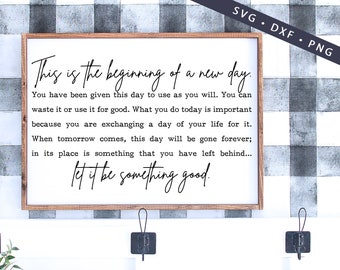 SVG • DXF • PNG
This is the beginning of a new day.
You have been given this day to use as you will. You can
waste it or use it for good. What you do today is important
because you are exchanging a day of your life for it.
When tomorrow comes, this day will be gone forever;
in its place is something that you have left behind...
let it be something good.